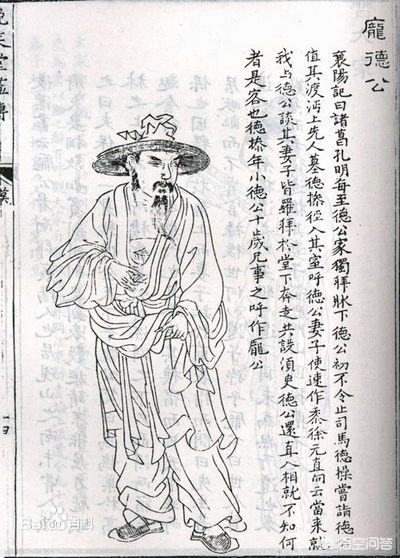 龐德公
襄陽記曰諸葛孔明每至德公家獨拜牀下德公初不令止司馬德操嘗詣德
值其渡沔上先人墓德操徑入其室呼德公妻子使速作黍徐元直向云當來就
我与德公談其妻子皆羅拜於堂下奔走共設須臾德公還直入相就不知何
者是客也德操年小德公十歲兄事之呼作龐公
晚笑堂畫傳
Baidu百科
悟空问答